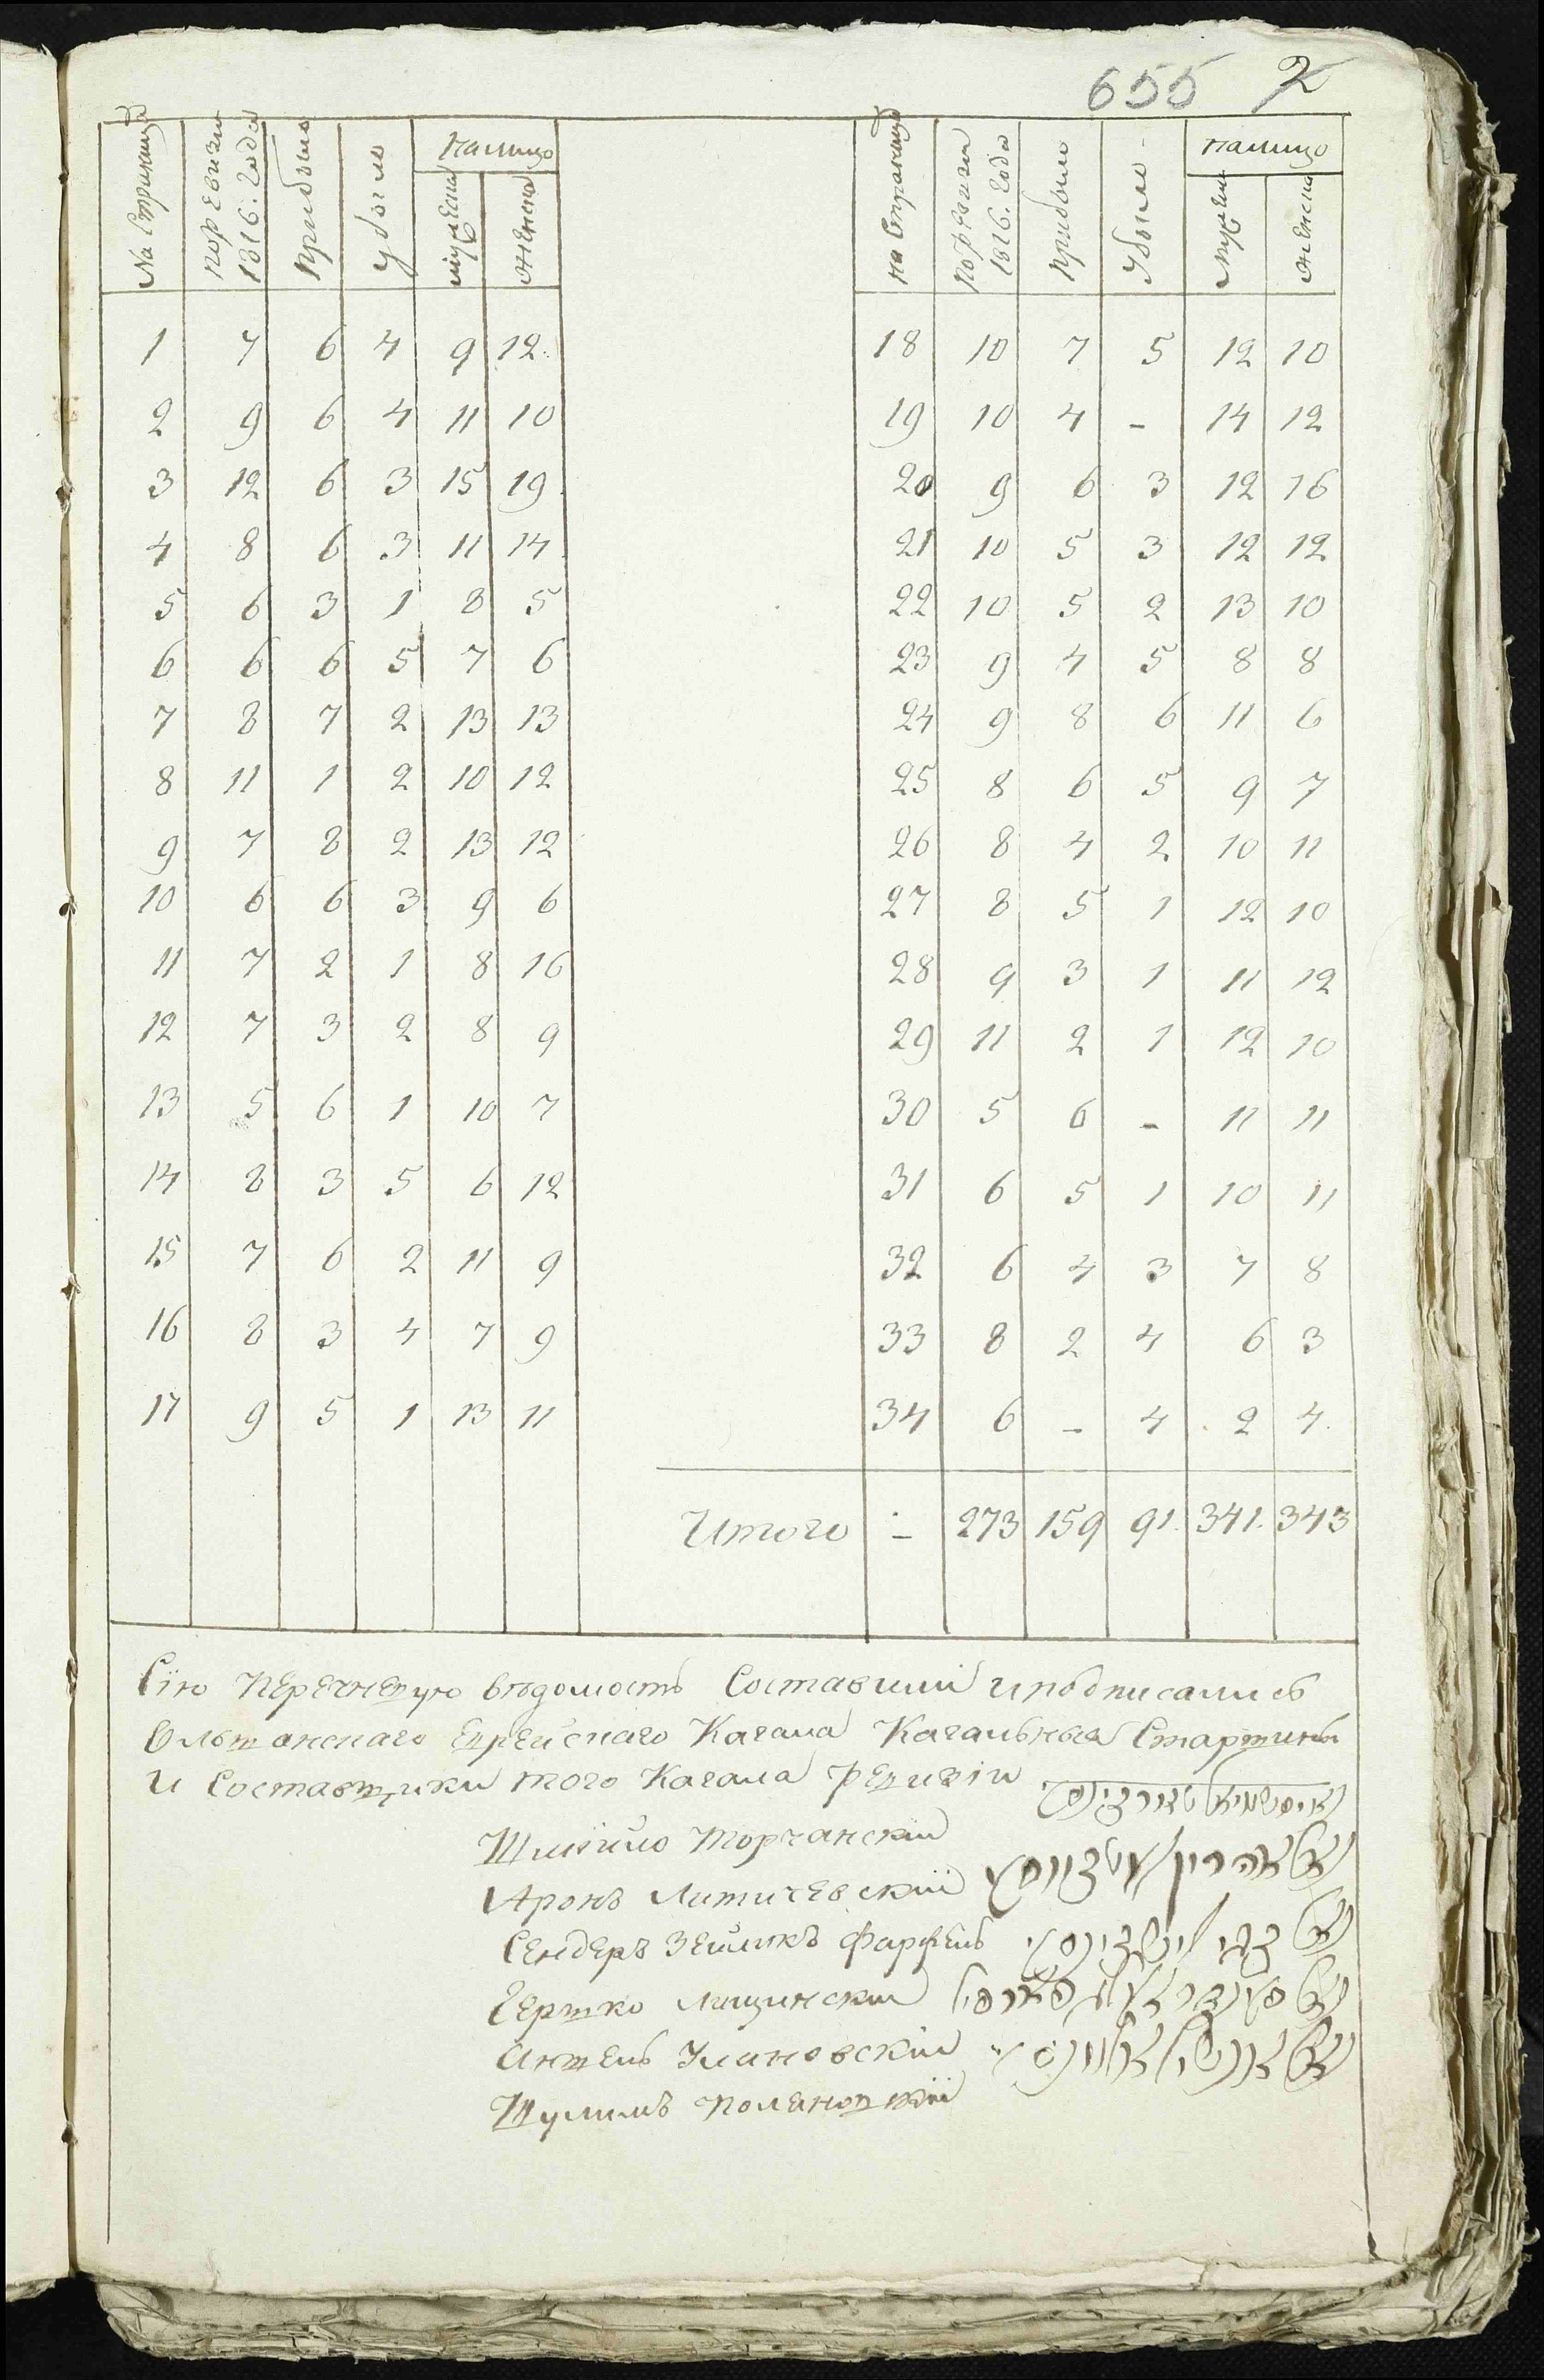 655 2
На Страницѣ | поревизіи 1816. Года | прибыло | убыло | налицо | мужеска | женска
на Страницѣ | поревизіи 1816. Года | прибыло | убыло - | налицо | мужеска | женска
1 7 6 4 9 12 | 18 10 7 5 12 10
2 9 6 4 11 10 | 19 10 4 - 14 12
3 12 6 3 15 19 | 20 9 6 3 12 16
4 8 6 3 11 14 | 21 10 5 3 12 12
5 6 3 1 8 5 | 22 10 5 2 13 10
6 6 6 5 7 6 | 23 9 4 5 8 8
7 8 7 2 13 13 | 24 9 8 6 11 6
8 11 1 2 10 12 | 25 8 6 5 9 7
9 7 8 2 13 12 | 26 8 4 2 10 11
10 6 6 3 9 6 | 27 8 5 1 12 10
11 7 2 1 8 16 | 28 9 3 1 11 12
12 7 3 2 8 9 | 29 11 2 1 12 10
13 5 6 1 10 7 | 30 5 6 - 11 11
14 8 3 5 6 12 | 31 6 5 1 10 11
15 7 6 2 11 9 | 32 6 4 3 7 8
16 8 3 4 7 9 | 33 8 2 4 6 3
17 9 5 1 13 11 | 34 6 - 4 2 4
Итого - 273 159 91. 341. 343
Сію перечневую вѣдомость Составили и подписались
Ольшанскаго Еврейскаго Кагала Кагальныя Старшины
и Составщики того Кагала ревизіи
Шмойло Торчанскій
Аронъ Литичевскій
Сендеръ Зейликъ
Гершко Лищинскій
Аншель Улановскій
Шулимъ